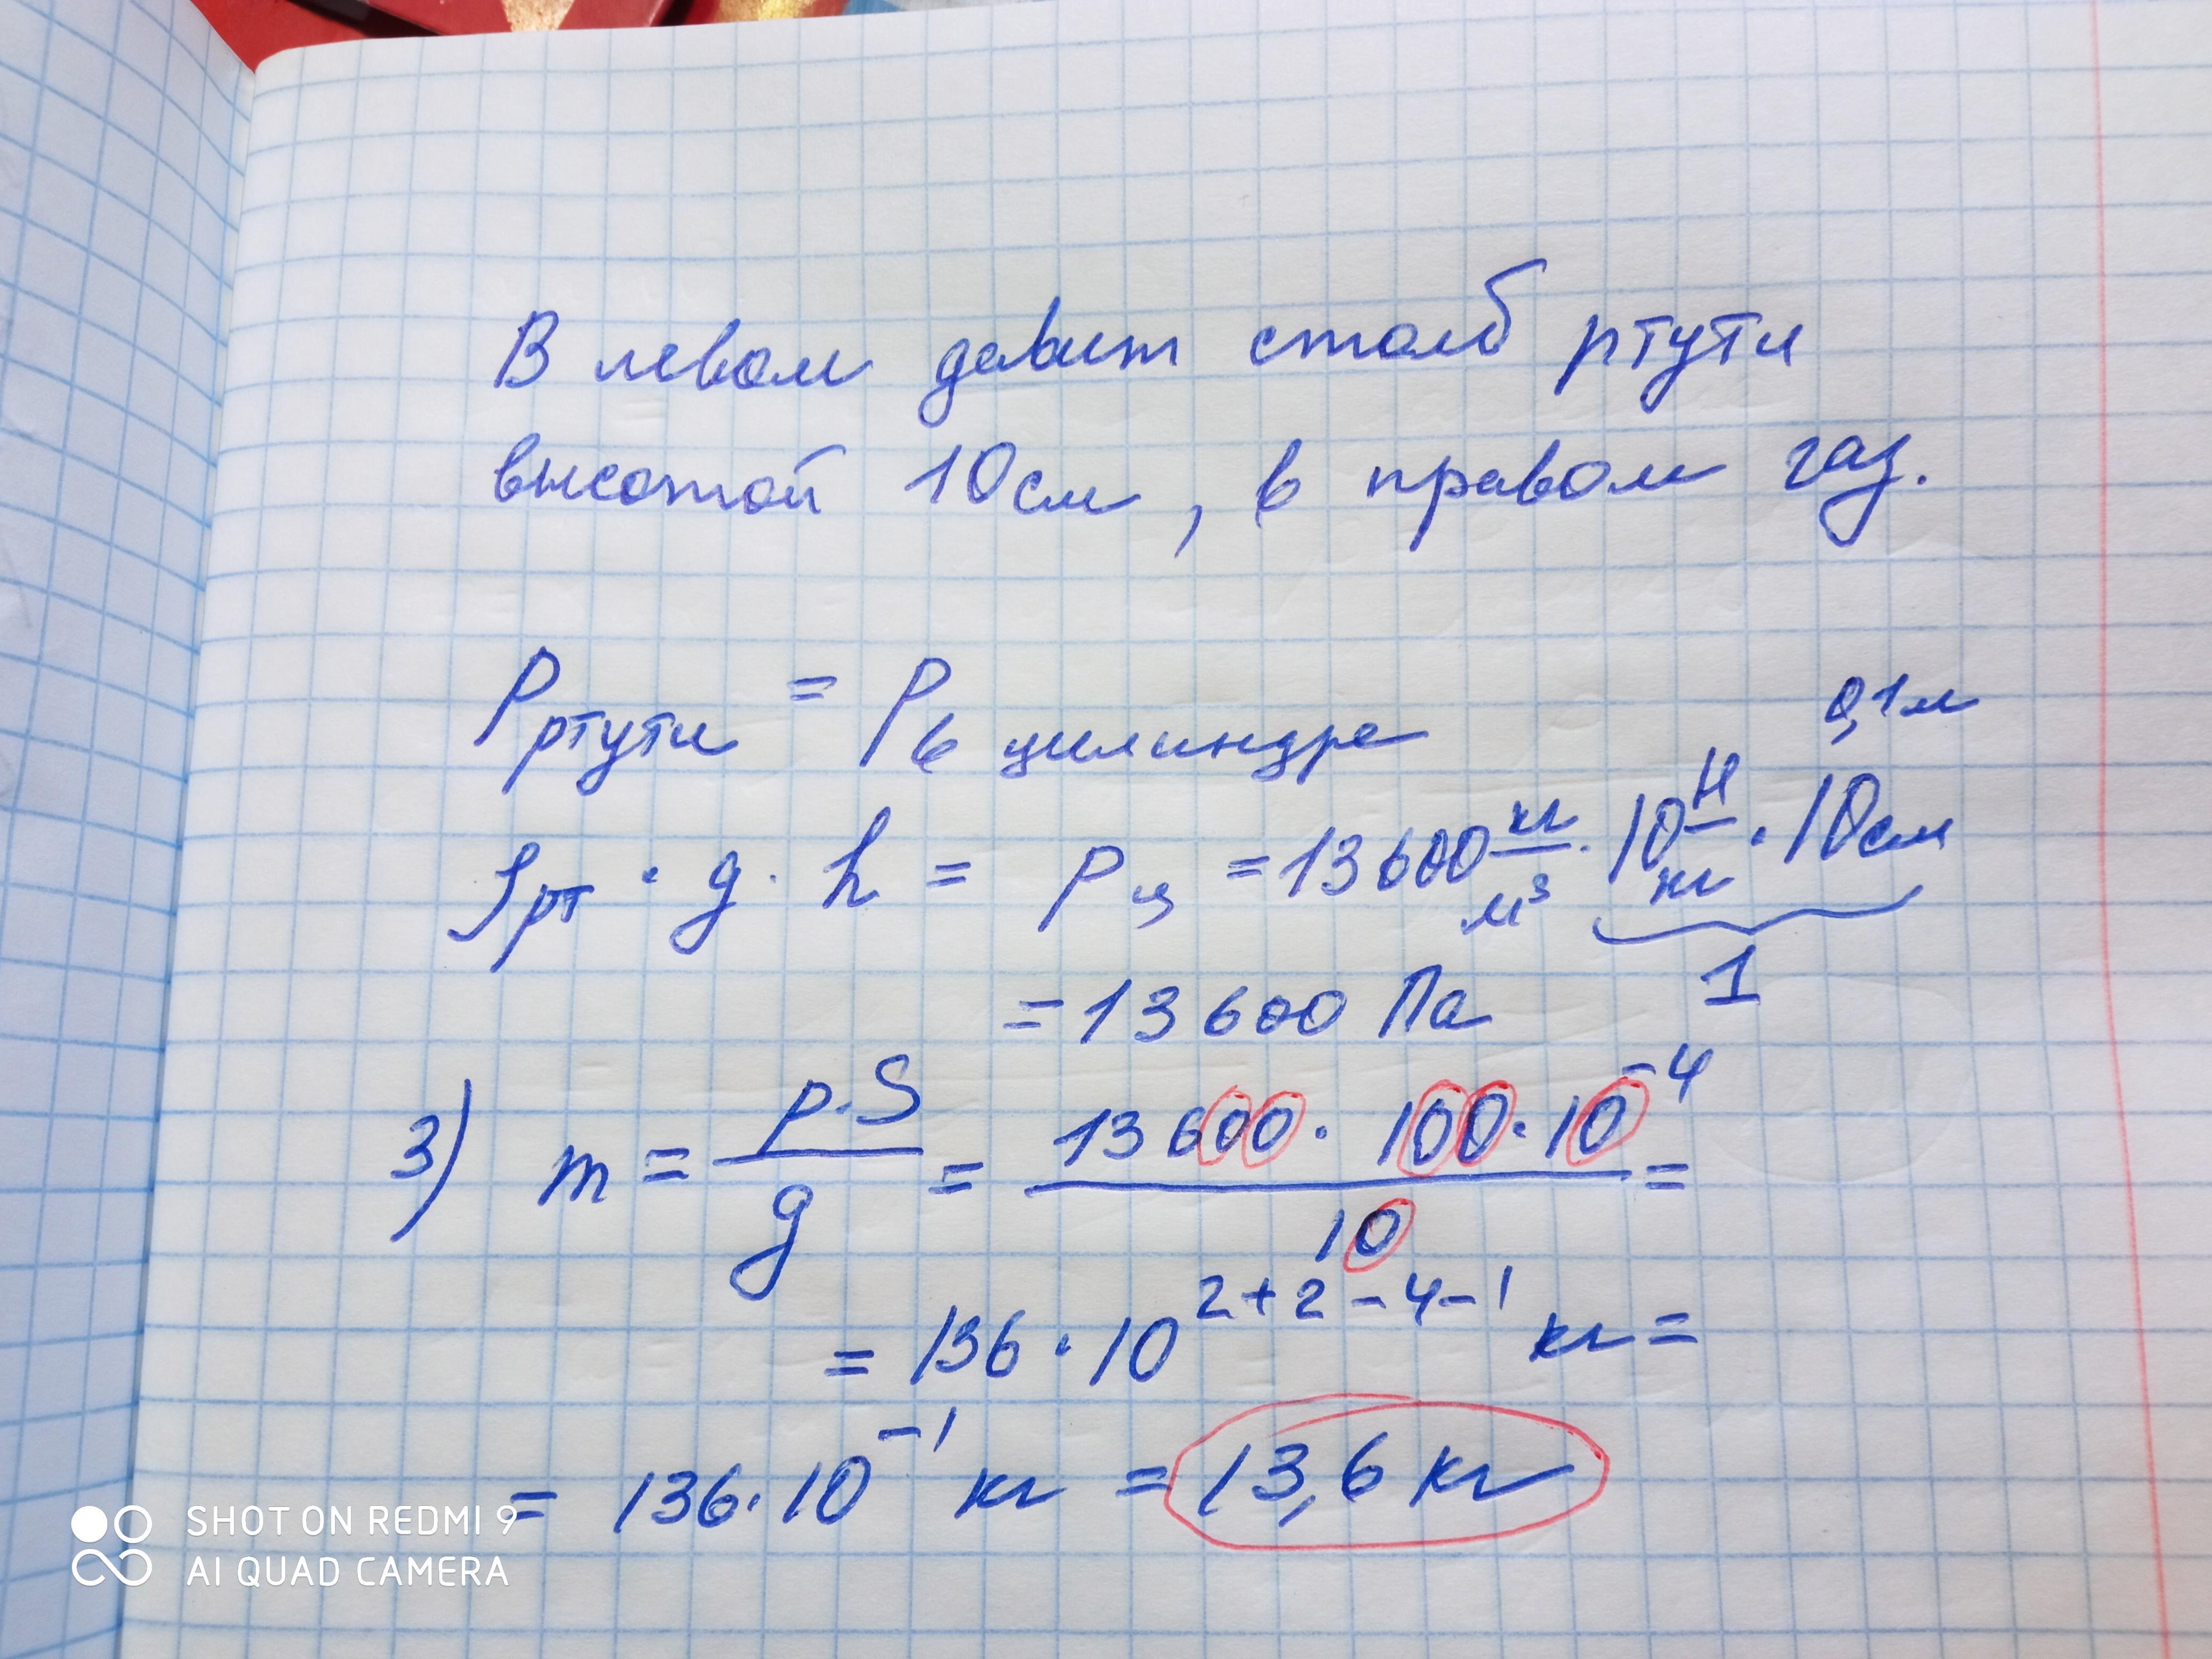 В левом давит столб ртути
высотой 10см, в правом газ.
Pртути = Pв цилиндре
0,1м
ρрт · g · h = pц = 13600 кг/м³ · 10 Н/кг · 10см
1
= 13600 Па
3) m = p·S/g = 13600 · 100 · 10⁻⁴/10 =
= 136 · 10²⁺²⁻⁴⁻¹ кг =
= 136 · 10⁻¹ кг = 13,6 кг
SHOT ON REDMI 9
AI QUAD CAMERA